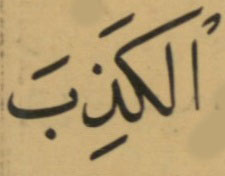 اُلْكَذِبَ